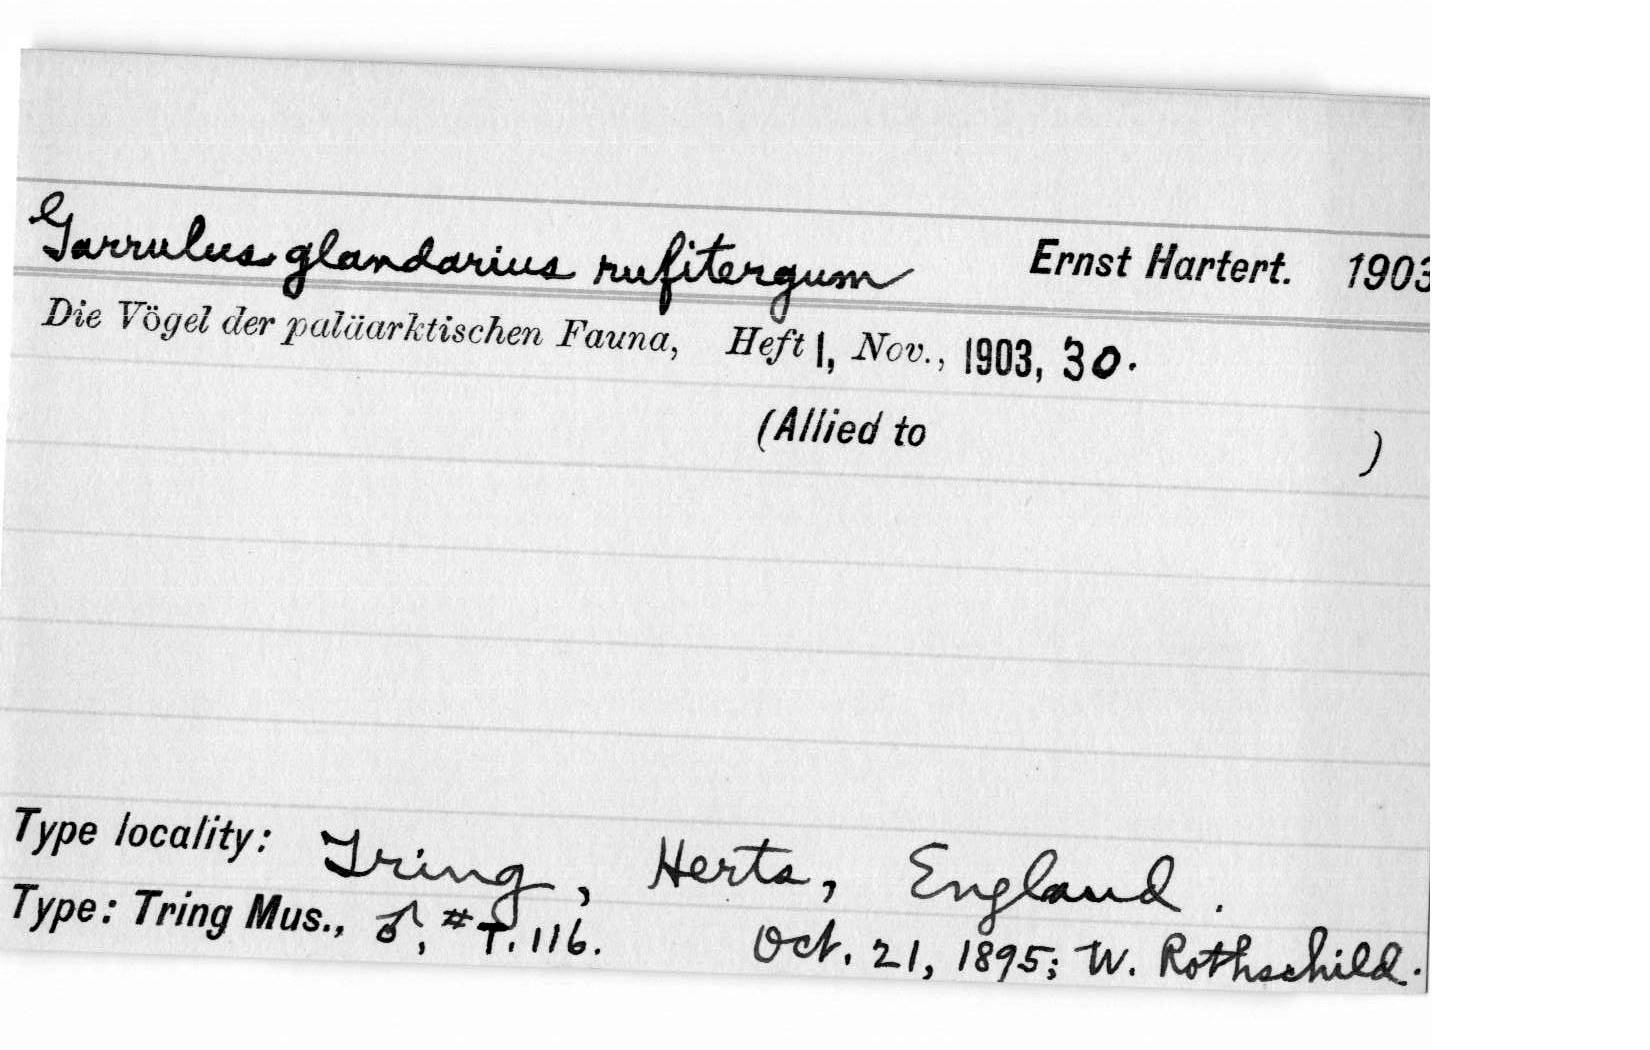 Garrulus glandarius rufitergum Ernst Hartert. 1903
Die Vögel der paläarktischen Fauna, Heft 1, Nov., 1903, 30.
(Allied to )
Type locality: Tring, Herts, England.
Type: Tring Mus., ♂, # T. 116. Oct. 21, 1895; W. Rothschild.